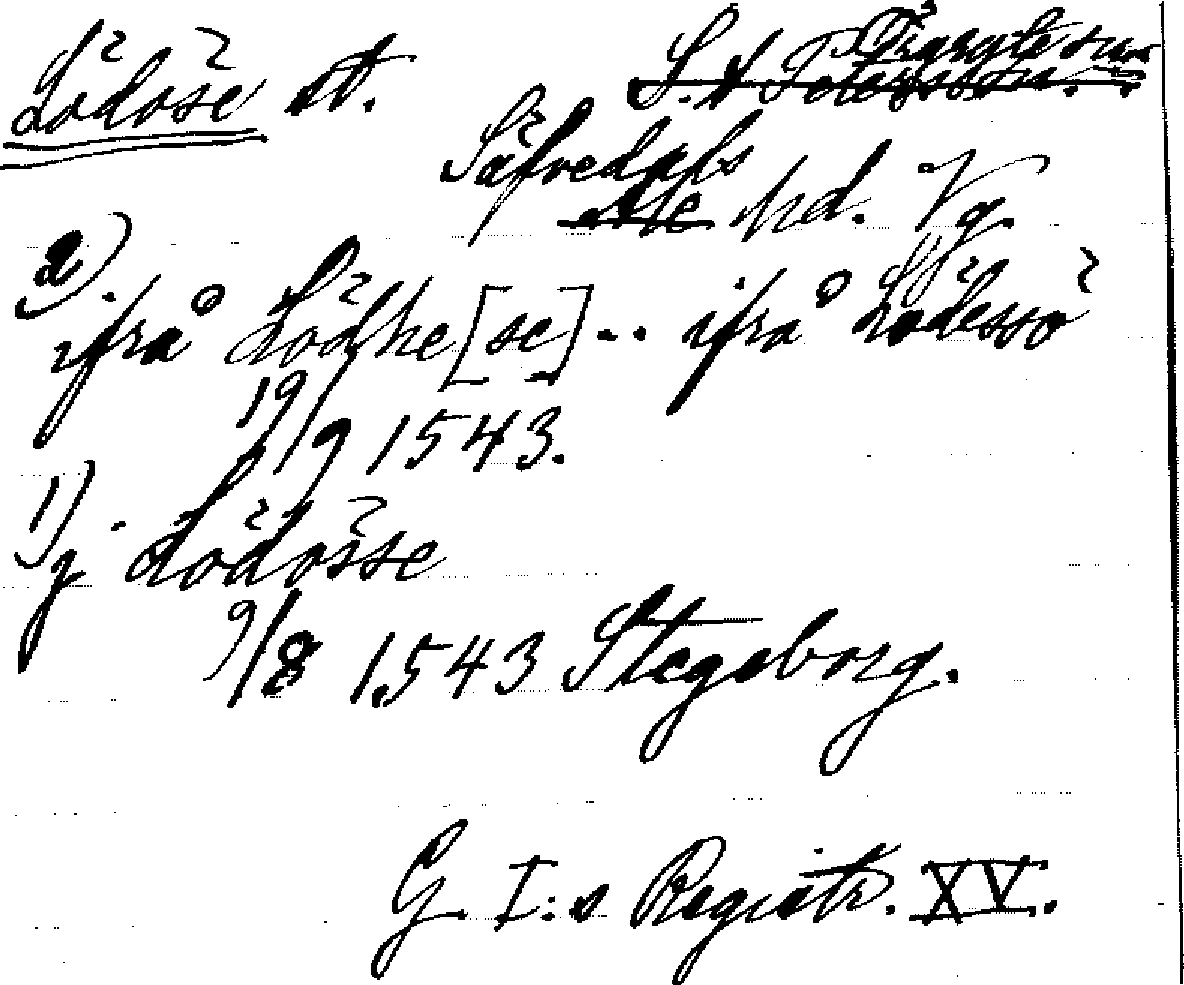 Lödöse st. Örgryte sn
S:t Peters sn.
Säfvedals
Ale hd. Vg.
2)
ifrå Lödhe[se] .. ifrå Lödessö
19/9 1543.
1)
j Lödösse
9/8 1543 Stegeborg.
G. I:s Registr. XV.